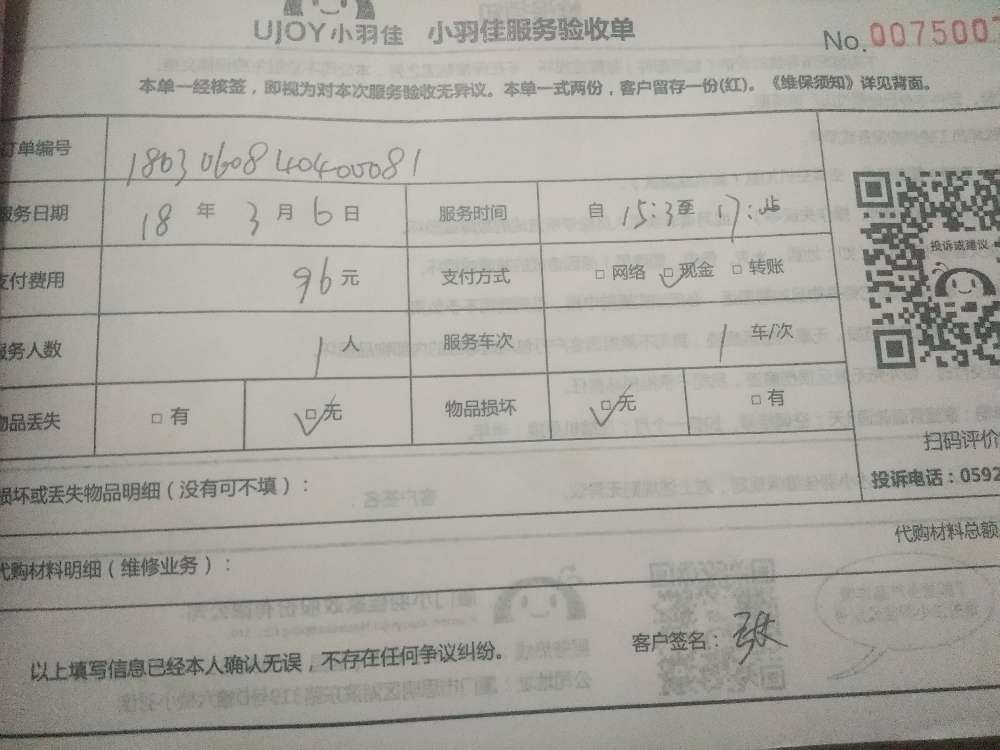 UJOY小羽佳 小羽佳服务验收单
No.0075007
本单一经核签，即视为对本次服务验收无异议。本单一式两份，客户留存一份(红)。《维保须知》详见背面。
订单编号 18030608404000081
服务日期 18 年 3 月 6 日 服务时间 自 15:3 至 17:
支付费用 96 元 支付方式 □ 网络 □ 现金 □ 转账
服务人数 1 人 服务车次 1 车/次
物品丢失 □ 有 □ 无 物品损坏 □ 无 □ 有
投诉或建议
扫码评价
投诉电话：0592
损坏或丢失物品明细（没有可不填）：
代购材料总额
代购材料明细（维修业务）：
以上填写信息已经本人确认无误，不存在任何争议纠纷。 客户签名：张